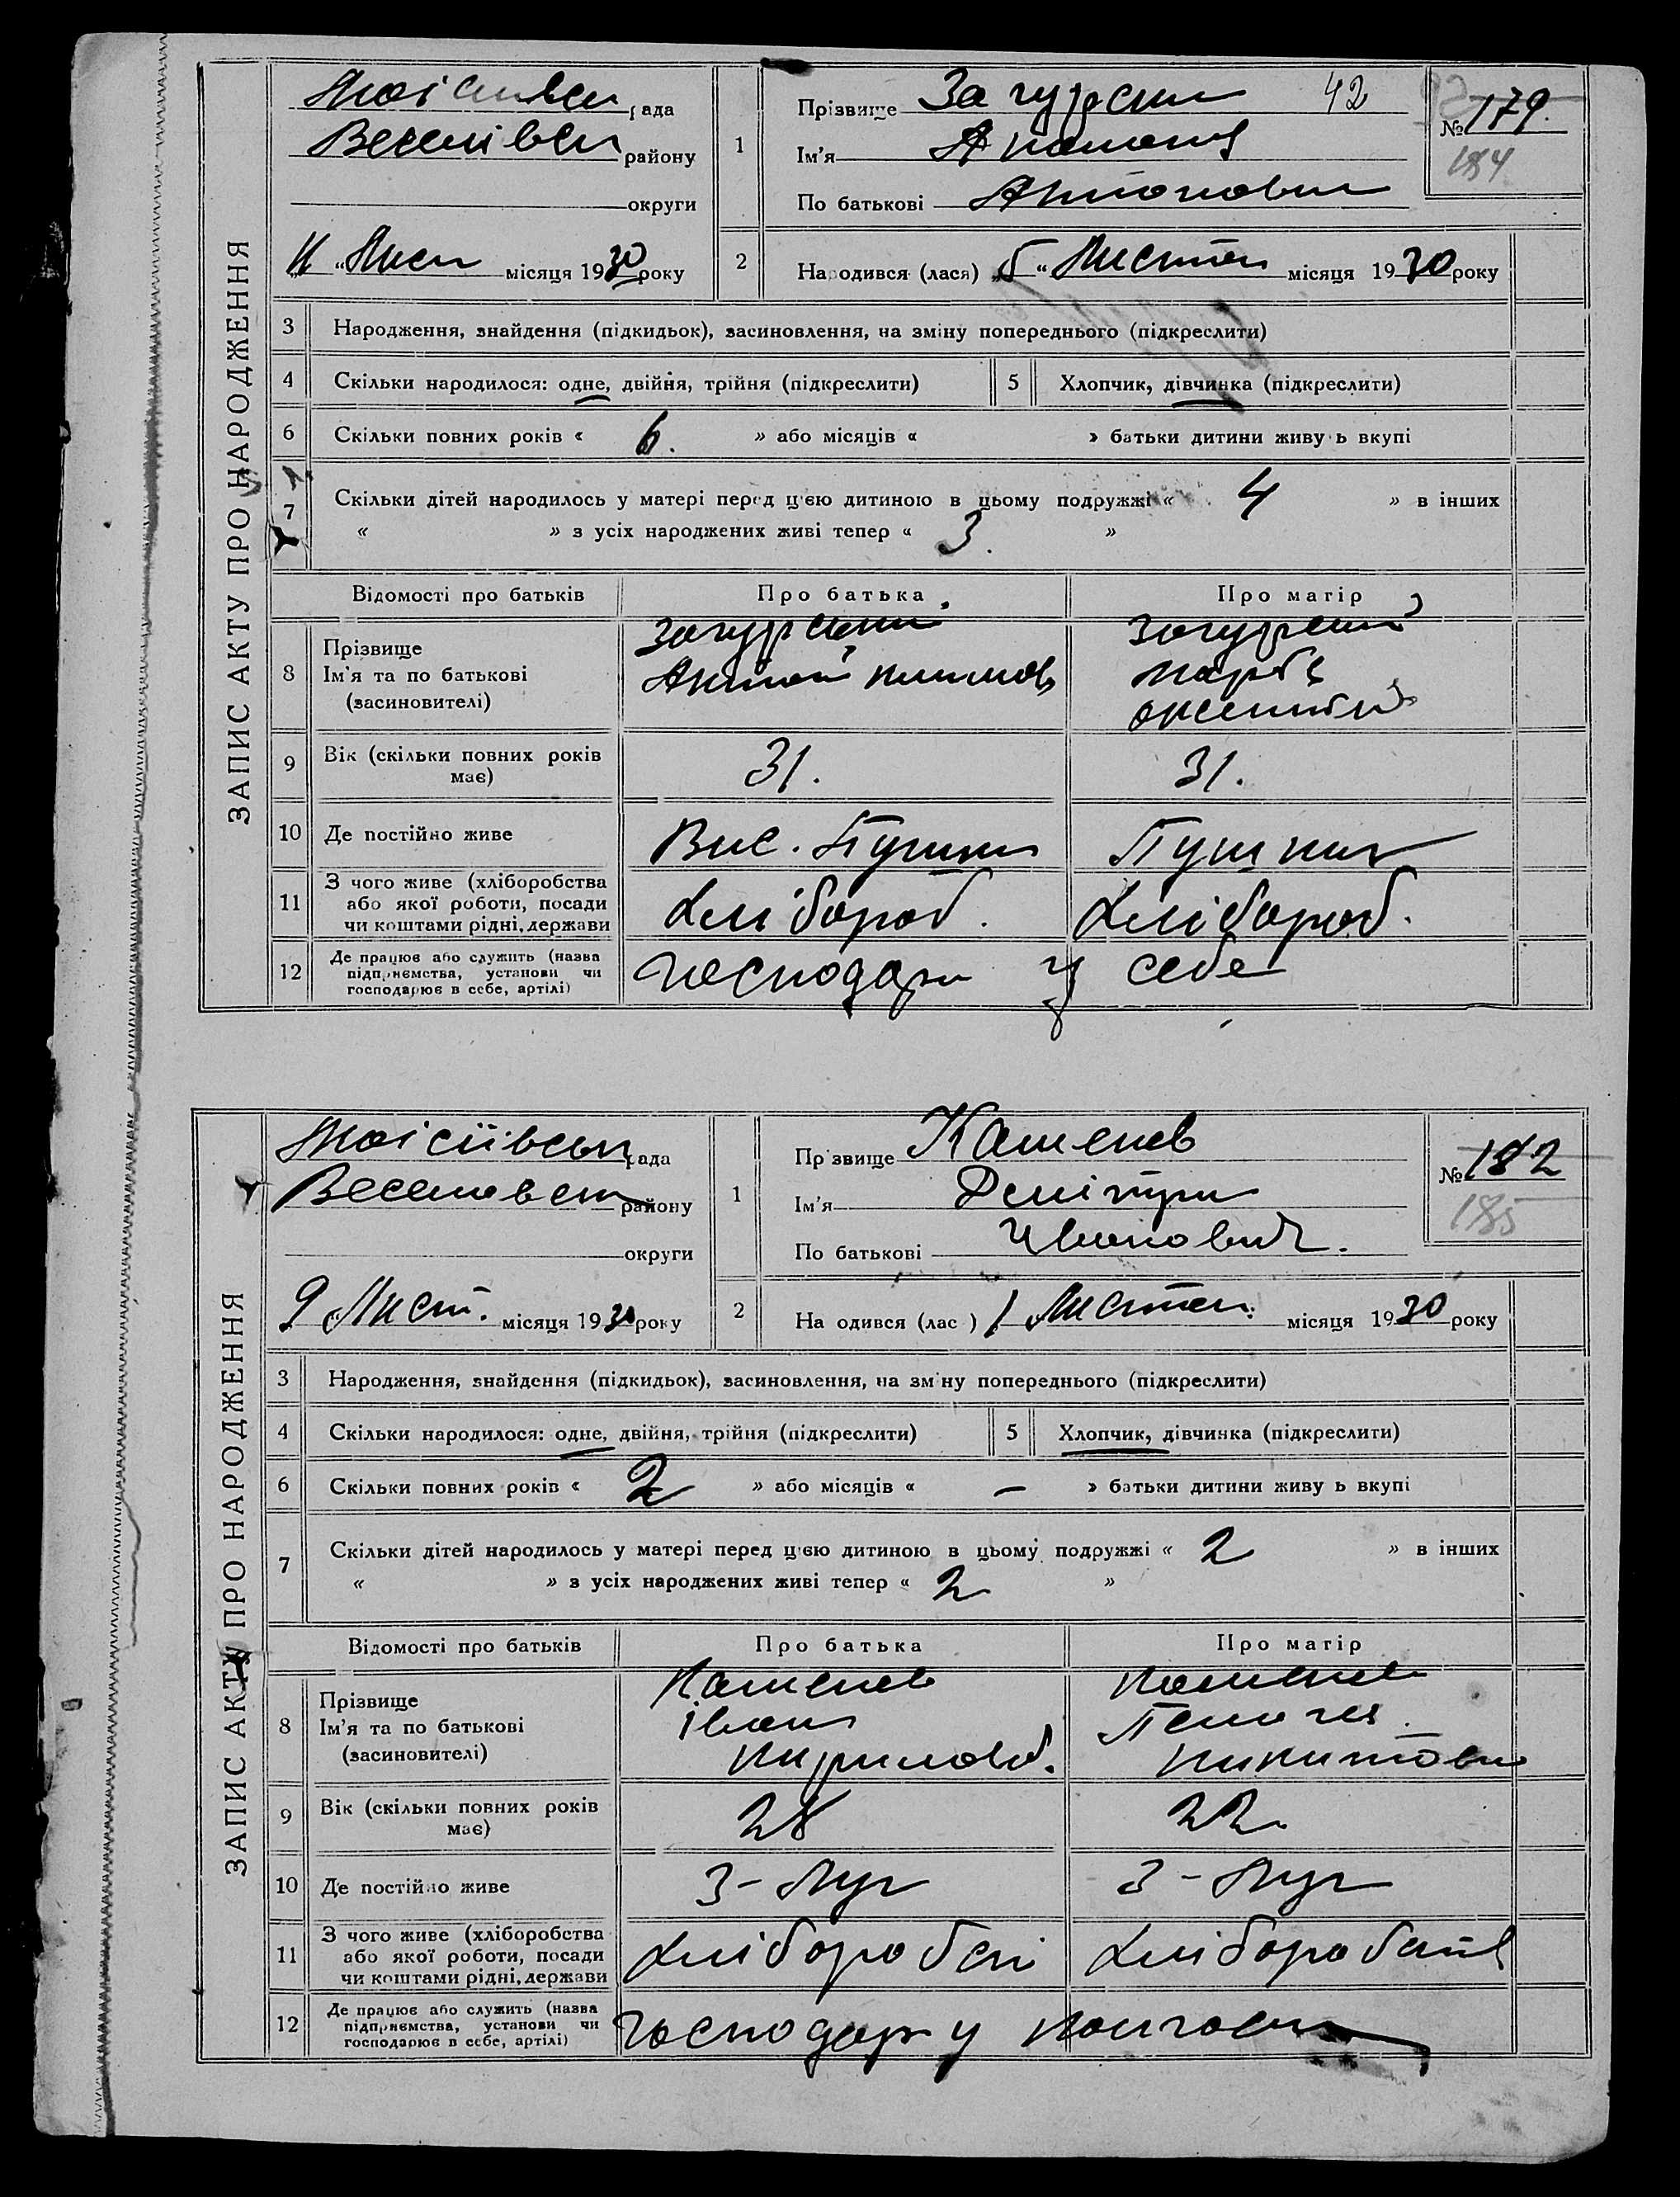 ЗАПИС АКТУ ПРО НАРОДЖЕННЯ
рада
району
округи
місяця 1930 року
1
Прізвище Загурски 42
Ім'я
По батькові Антонович
№ 179.
184
2
Народився (лася) „5“ Листоп місяця 1930 року
3 Народження, знайдення (підкидьок), засиновлення, на зміну попереднього (підкреслити)
4 Скільки народилося: одне, двійня, трійня (підкреслити) 5 Хлопчик, дівчинка (підкреслити)
6 Скільки повних років « 6. » або місяців « » батьки дитини живуть вкупі
7 Скільки дітей народилось у матері перед цією дитиною в цьому подружжі « 4 » в інших
« » з усіх народжених живі тепер « 3. »
Відомості про батьків Про батька Про матір
8 Прізвище
Ім'я та по батькові
(засиновителі)
Загурський
Антон Климов
Загурский
9 Вік (скільки повних років має) 31. 31.
10 Де постійно живе Вис. Пушкин Пушкин
11 З чого живе (хліборобства
або якої роботи, посади
чи коштами рідні, держави
Хлібороб. Хлібороб.
12 Де працює або служить (назва
підприємства, установи чи
господарює в себе, артілі)
Господар у себе
ЗАПИС АКТУ ПРО НАРОДЖЕННЯ
Моісіївськ рада
Веселовск району
округи
9 „Лист. місяця 1930 року
1
Прізвище Каменев
Ім'я Дмітри
По батькові Иванович.
№ 182
185
2
Народився (лася) 1 Листоп. місяця 1930 року
3 Народження, знайдення (підкидьок), засиновлення, на зміну попереднього (підкреслити)
4 Скільки народилося: одне, двійня, трійня (підкреслити) 5 Хлопчик, дівчинка (підкреслити)
6 Скільки повних років « 2 » або місяців « — » батьки дитини живуть вкупі
7 Скільки дітей народилось у матері перед цією дитиною в цьому подружжі « 2 » в інших
« » з усіх народжених живі тепер « 2 »
Відомості про батьків Про батька Про матір
8 Прізвище
Ім'я та по батькові
(засиновителі)
Каменев
Іван
Кирилов.
Каменев
Пелагея.
Никитовн
9 Вік (скільки повних років має) 28 22
10 Де постійно живе З-Луг З-Луг
11 З чого живе (хліборобства
або якої роботи, посади
чи коштами рідні, держави
12 Де працює або служить (назва
підприємства, установи чи
господарює в себе, артілі)
Господар у